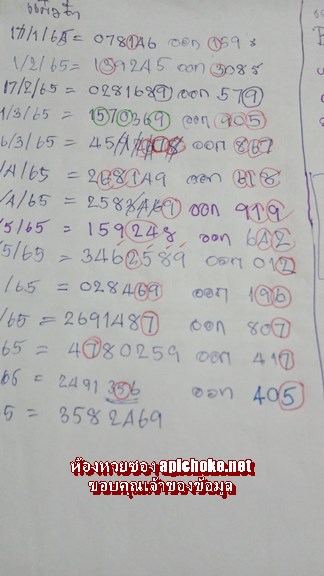 17/1/65 = 078146 ออก 159
1/2/65 = 139245 ออก 308
17/2/65 = 0281689 ออก 579
1/3/65 = 1570369 ออก 905
6/3/65 = 45 ออก 867
/4/65 = 268149 ออก 818
/4/65 = 2583467 ออก 919
/5/65 = 159248 ออก 642
/5/65 = 3462589 ออก 012
/65 = 028469 ออก 196
/65 = 2691487 ออก 807
65 = 4780259 ออก 417
65 = 2491356 ออก 405
5 = 3582469
ห้องหวยซอง apichoke.net
ขอบคุณเจ้าของข้อมูล